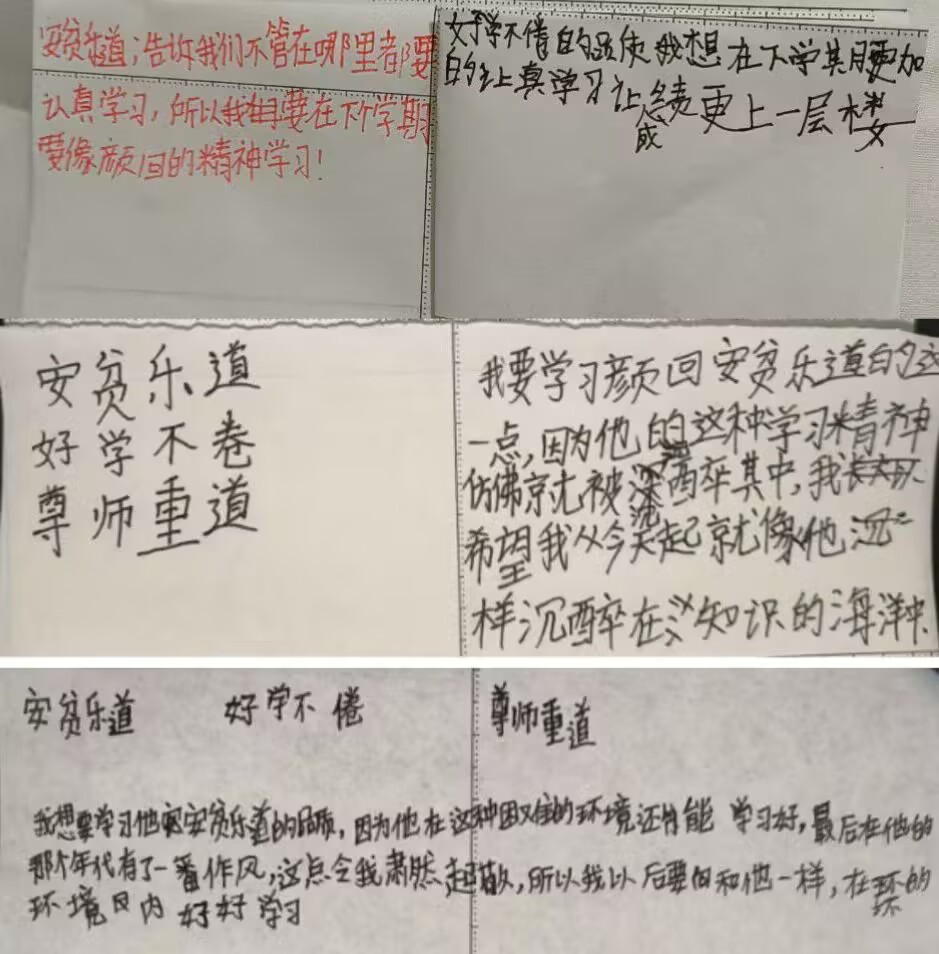 安贫乐道；告诉我们不管在哪里都要
认真学习，所以我要在下个学期
要像颜回的精神学习！
好学不倦的品质我想在下学期更加
的认真学习让成绩更上一层楼
安贫乐道
好学不卷
尊师重道
我要学习颜回安贫乐道的这
一点，因为他的这种学习精神
仿佛就被沉酔其中，我
希望我从今天起就像他沉一
样沉酔在知识的海洋中
安贫乐道 好学不倦 尊师重道
我想要学习他安贫乐道的品质，因为他在这种困难的环境还能学习好，最后在他的
那个年代有了一番作风，这点令我肃然起敬，所以我以后要和他一样，在环的
环境内好好学习